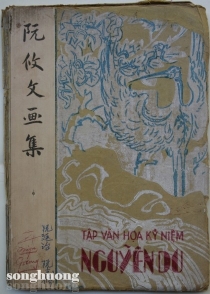 阮攸文画集
TẬP VĂN HỌA KỶ NIỆM
NGUYỄN DU
songhuong